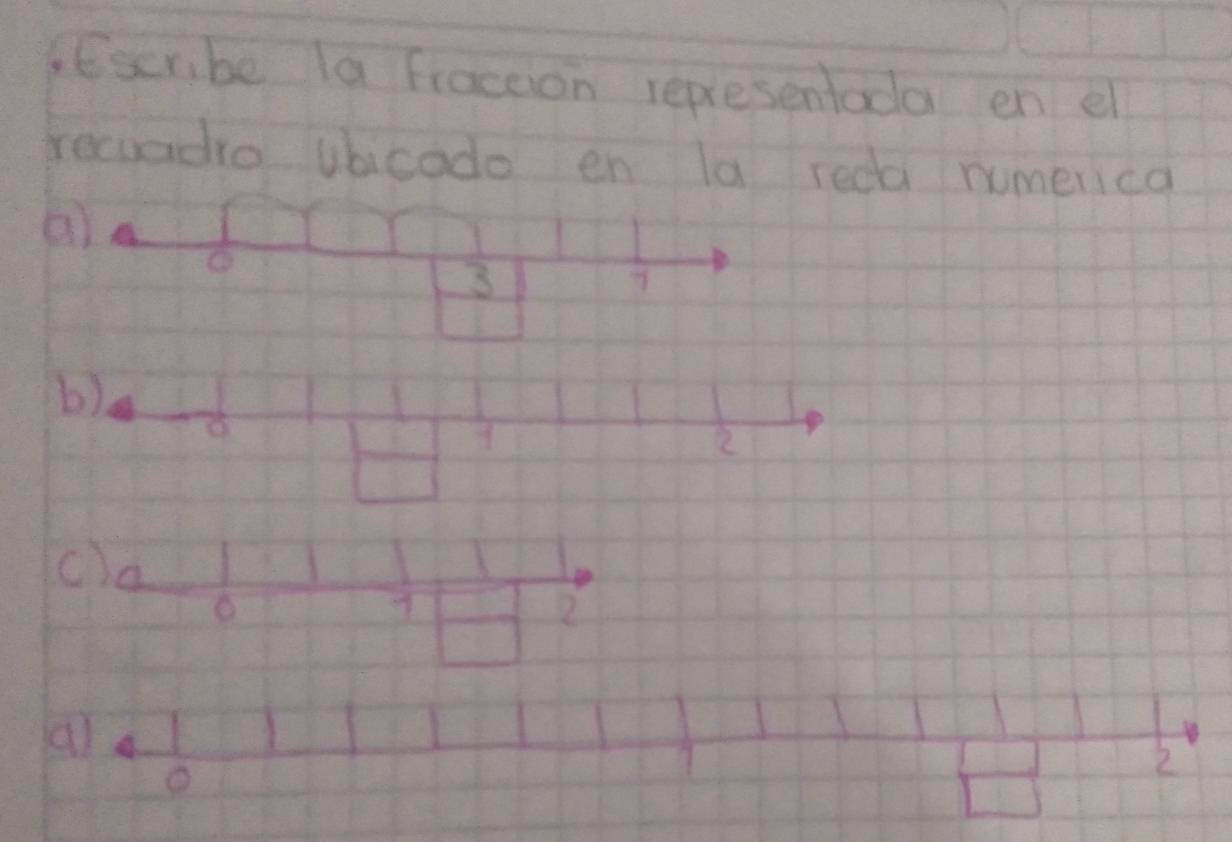 .Escribe la fracción representada en el
recuadro ubicado en la recta numerica
a) 0 3 1
b) 0 1 2
c) 0 1 2
d) 0 1 2